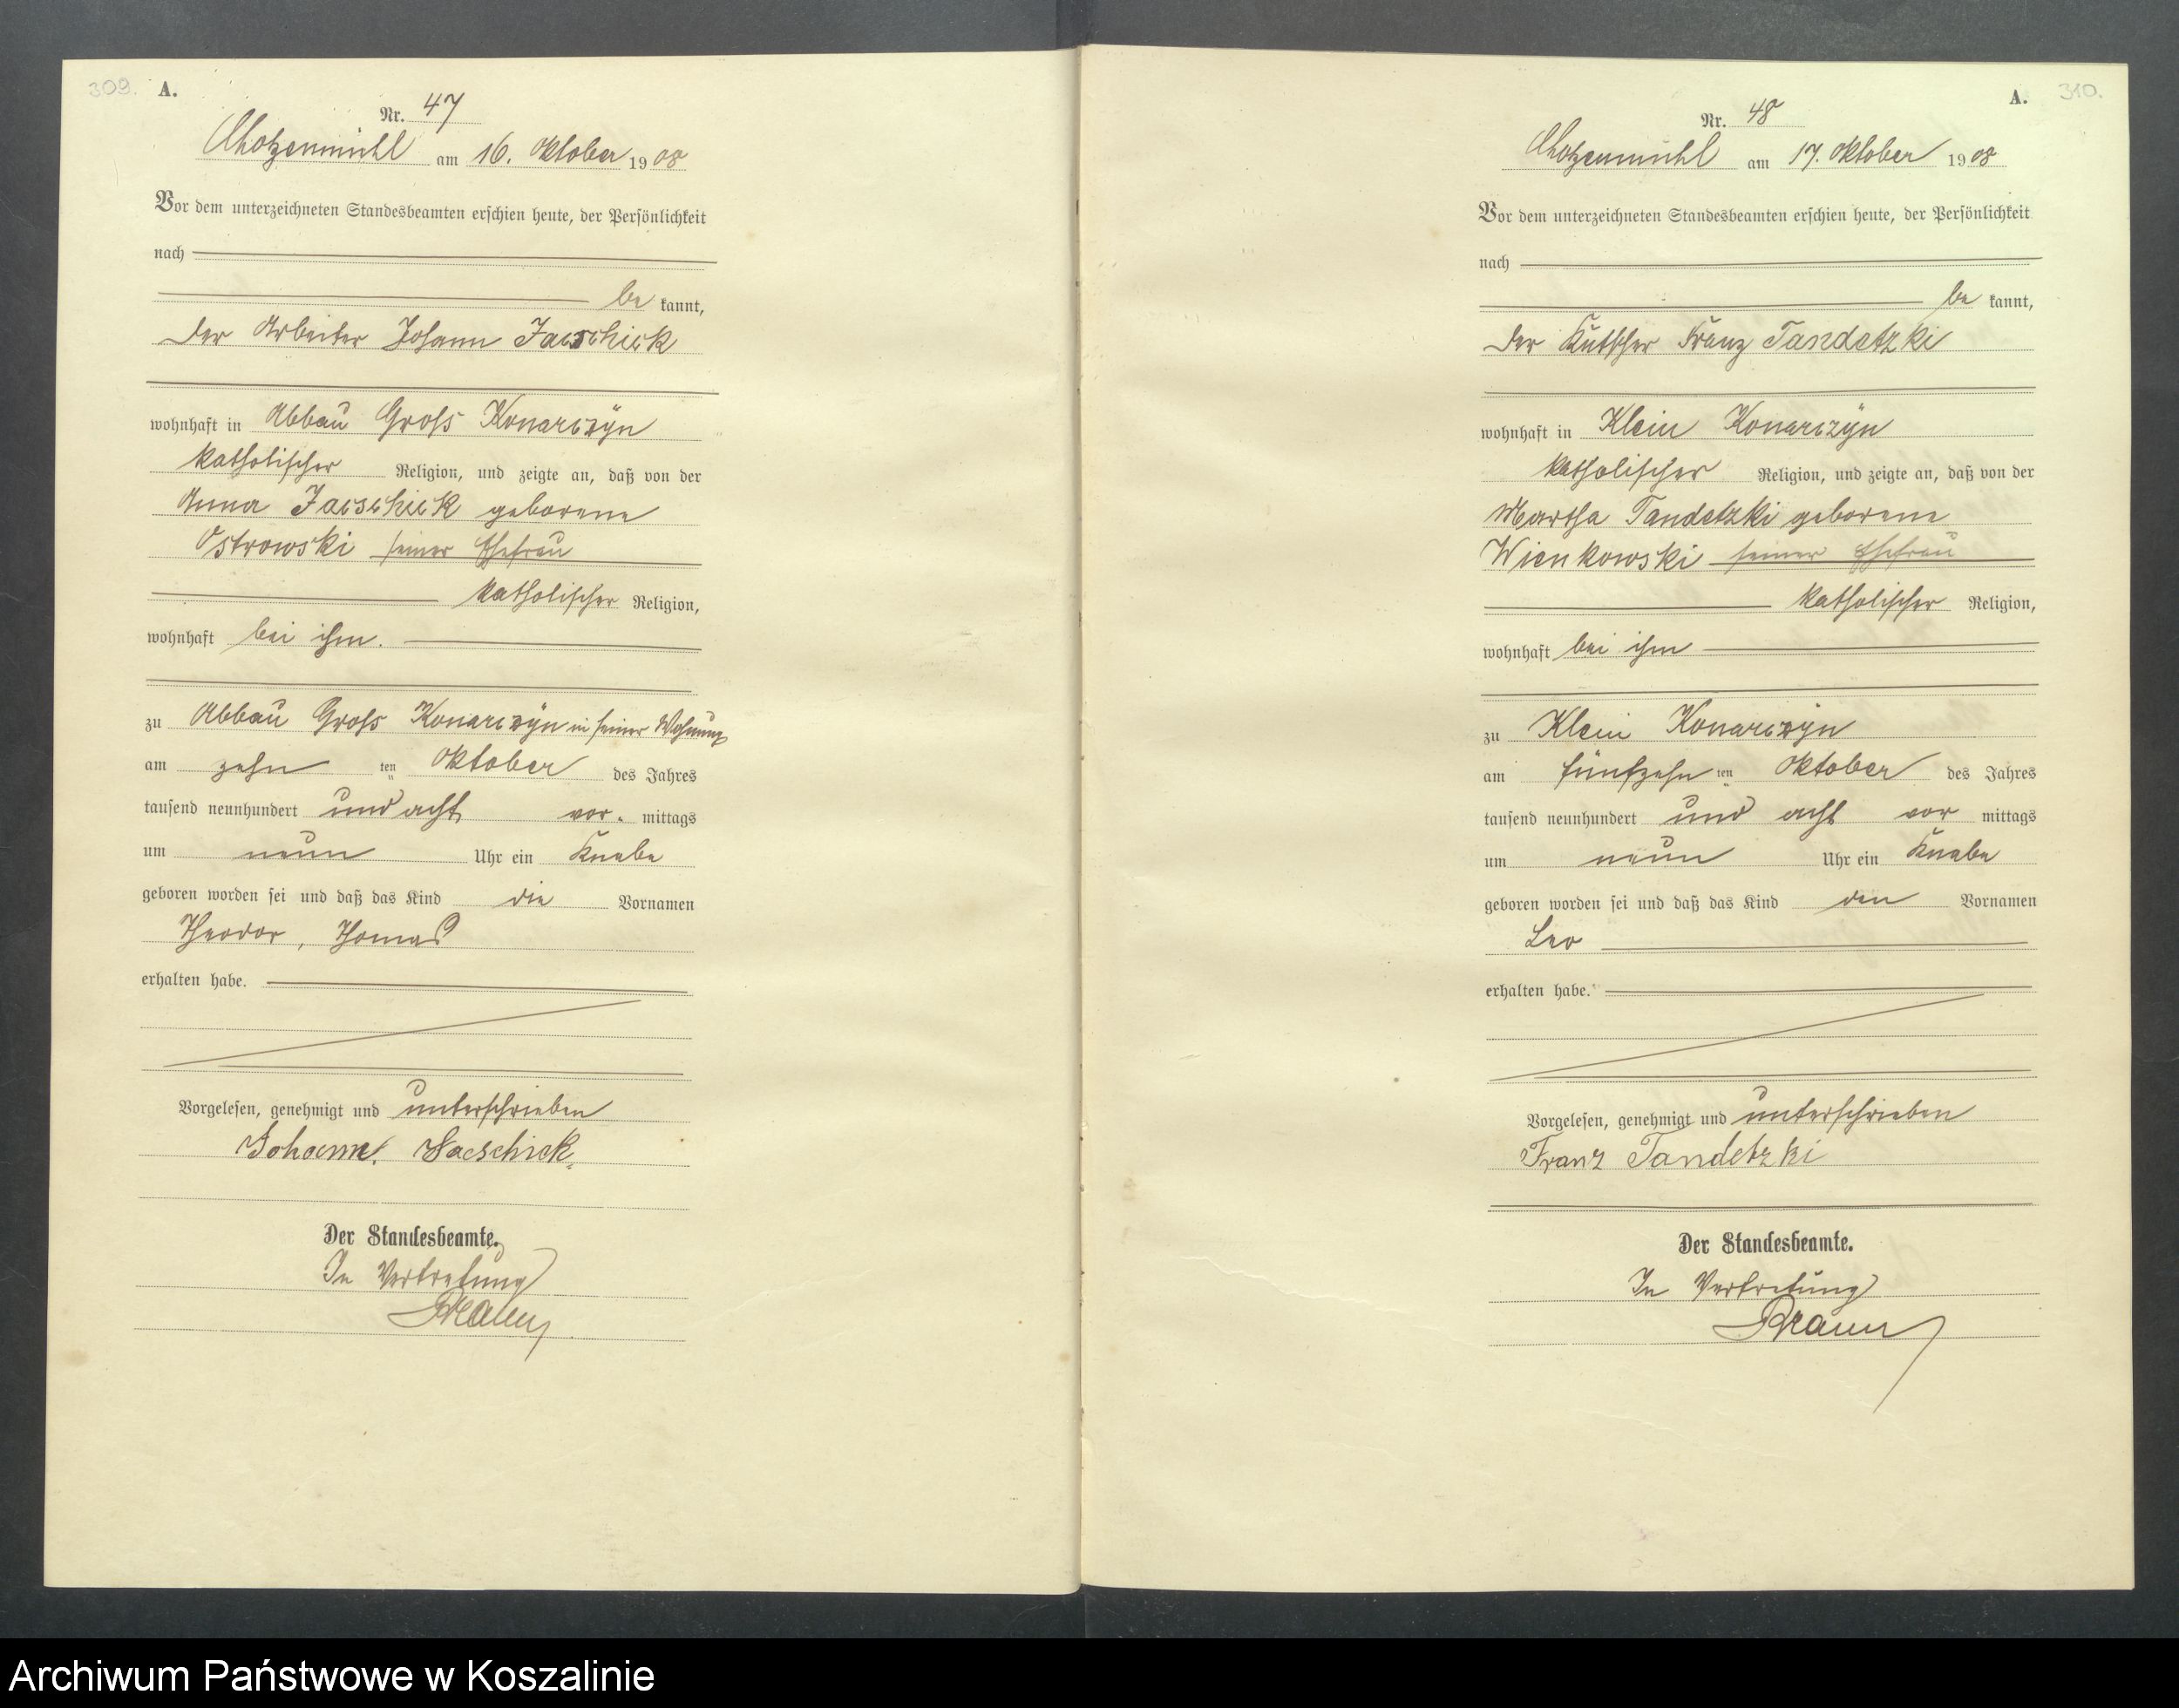 309. A.
Nr. 47
Chotzenmühl am 16. Oktober 1908
Vor dem unterzeichneten Standesbeamten erschien heute, der Persönlichkeit
nach
be kannt,
der Arbeiter Johann Jacschick
wohnhaft in Abbau Gross Konarczyn
katholischer Religion, und zeigte an, daß von der
Anna Jacschick geborene
Ostrowski seiner Ehefrau
katholischer Religion,
wohnhaft bei ihm.
zu Abbau Gross Konarczyn in seiner Wohnung
am zehn ten Oktober des Jahres
tausend neunhundert und acht vor mittags
um neun Uhr ein Knabe
geboren worden sei und daß das Kind die Vornamen
Theodor, Thomas
erhalten habe.
Vorgelesen, genehmigt und unterschrieben
Johann Jacschick
Der Standesbeamte.
In Vertretung
A. 310.
Nr. 48
Chotzenmühl am 17. Oktober 1908
Vor dem unterzeichneten Standesbeamten erschien heute, der Persönlichkeit
nach
be kannt,
der Kutscher Franz Tandetzki
wohnhaft in Klein Konarczyn
katholischer Religion, und zeigte an, daß von der
Martha Tandetzki geborene
Wienkowski seiner Ehefrau
katholischer Religion,
wohnhaft bei ihm
zu Klein Konarczyn
am fünfzehn ten Oktober des Jahres
tausend neunhundert und acht vor mittags
um neun Uhr ein Knabe
geboren worden sei und daß das Kind den Vornamen
Leo
erhalten habe.
Vorgelesen, genehmigt und unterschrieben
Franz Tandetzki
Der Standesbeamte.
In Vertretung
Archiwum Państwowe w Koszalinie